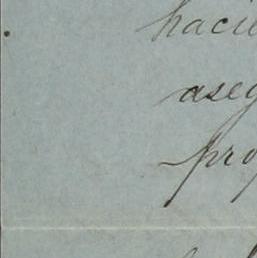 hacie
aseg
prop